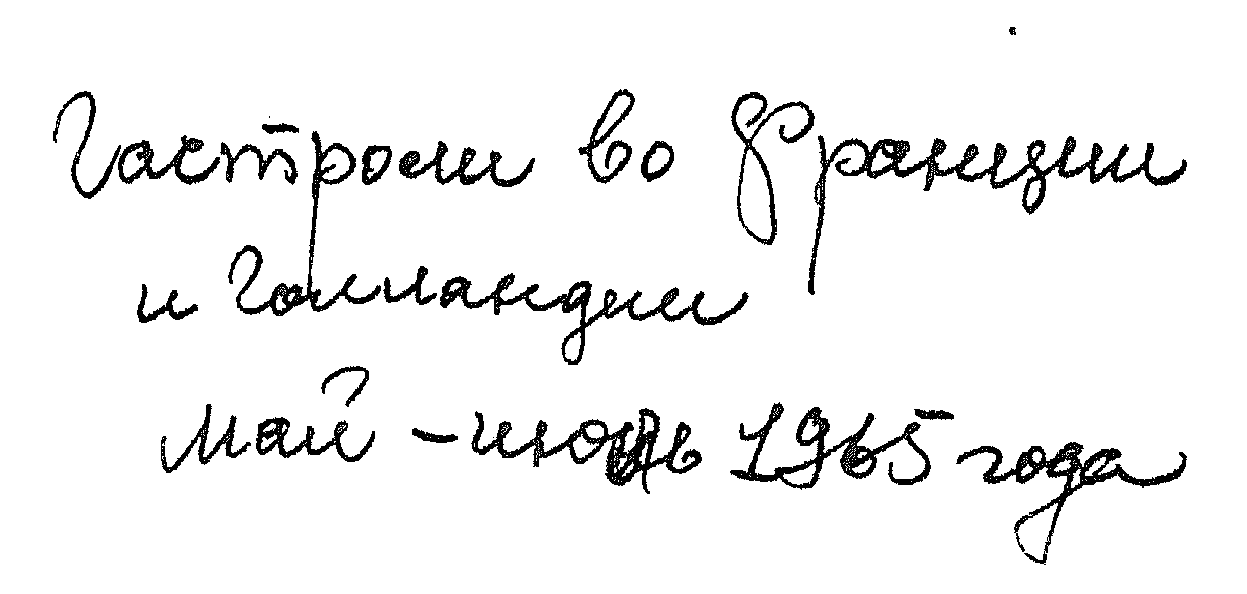 Гастроли во Франции
и Голландии
май – 1965 года